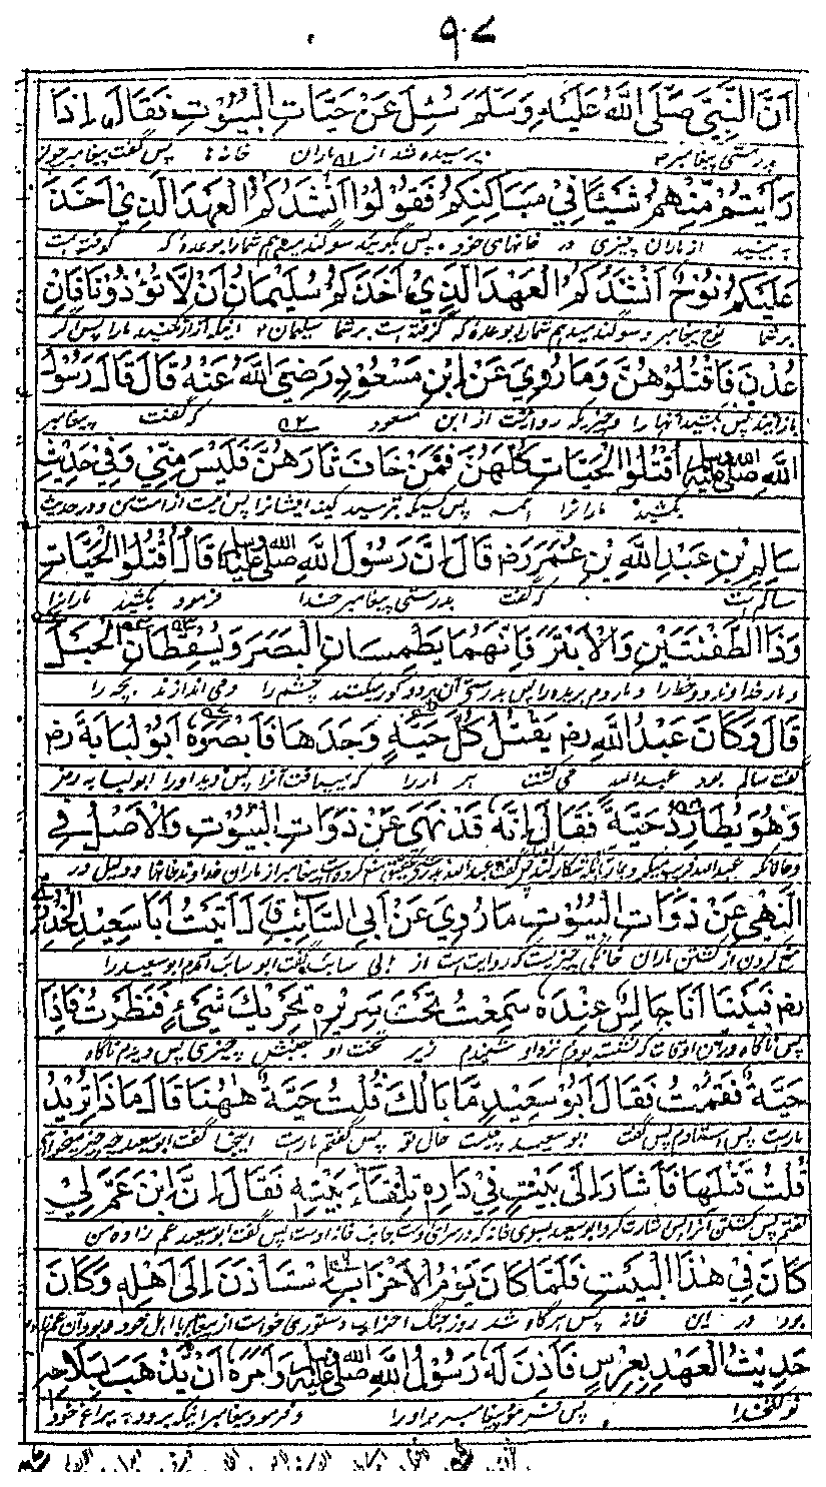 ٩٠٧
اَنَّ النَّبِيَّ صَلَّى اللهُ عَلَيْهِ وَسَلَّمَ سُئِلَ عَنْ حَيَّاتِ الْبُيُوْتِ فَقَالَ اِذَا
بدرستی پیغامبر پرسیده شد از ماران خانه ها پس گفت پیغامبر چون
رَاَيْتُمْ مِّنْهُمْ شَيْئًا فِيْ مَسَاكِنِكُمْ فَقُوْلُوْا اَنْشُدُكُمُ الْعَهْدَ الَّذِيْ اَخَذَ
به بینید از ماران چیزی در خانهای خود پس بگویید سوگند میدهم شمارا بوعدۀ که گرفته است
عَلَيْكُمْ نُوْحٌ اَنْشُدُكُمُ الْعَهْدَ الَّذِيْ اَخَذَ كُمْ سُلَيْمَانُ اَنْ لَّا تُؤْذُوْنَا فَاِنْ
بر شما نوح پیغامبر و سوگند میدهم شمارا بوعدۀ که گرفته است بر شما سلیمان اینکه آزار نکنید مارا پس اگر
عُدْنَ فَاقْتُلُوْهُنَّ وَمَا رُوِيَ عَنْ اِبْنِ مَسْعُوْدٍ رَضِيَ اللهُ عَنْهُ قَالَ قَالَ رَسُوْلُ
باز آیند پس بکشید آنها را و چیزیکه روایت از ابن مسعود که گفت پیغامبر
اللهِ صلى الله عليه وسلم اُقْتُلُوا الْحَيَّاتِ كُلَّهُنَّ فَمَنْ خَافَ ثَارَهُنَّ فَلَيْسَ مِنِّيْ وَفِيْ حَدِيْثِ
بکشید مارانرا همه پس کسیکه بترسید کینه ایشانرا پس نیست از امت من و در حدیث
سَالِمِ بْنِ عَبْدِ اللهِ بْنِ عُمَرَ رض قَالَ اِنَّ رَسُوْلَ اللهِ صلى الله عليه وسلم قَالَ اُقْتُلُوا الْحَيَّاتِ
سالم است که گفت بدرستی پیغامبر خدا فرمود بکشید مارانرا
وَذَا الطُّفْيَتَيْنِ وَالْاَبْتَرَ فَاِنَّهُمَا يَطْمِسَانِ الْبَصَرَ وَيُسْقِطَانِ الْحَبَلَ
و مار خداوند دو خط را و مار دم بریده را پس بدرستی آن هر دو کور میکنند چشم را و می اندازند بچه را
قَالَ وَكَانَ عَبْدُ اللهِ رض يَقْتُلُ كُلَّ حَيَّةٍ وَجَدَهَا فَاَبْصَرَهُ اَبُوْ لُبَابَةَ رض
گفت سالم بود عبدالله می کشت هر مار را که می یافت آنرا پس دید اورا ابو لبابه رض
وَهُوَ يُطَارِدُ حَيَّةً فَقَالَ اِنَّهُ قَدْ نَهَى عَنْ ذَوَاتِ الْبُيُوْتِ وَالْاَصْلُ فِي
النَّهْيِ عَنْ ذَوَاتِ الْبُيُوْتِ مَا رُوِيَ عَنْ اَبِي السَّائِبِ قَالَ اَتَيْتُ اَبَا سَعِيْدِ الْخُدْرِيَّ
منع کردن از کشتن ماران خانگی چیزیست که روایت است از ابی سائب گفت ابو سائب آمدم ابو سعید را
رض فَبَيْنَا اَنَا جَالِسٌ عِنْدَهُ سَمِعْتُ تَحْتَ سَرِيْرِهِ تَحْرِيْكَ شَيْءٍ فَنَظَرْتُ فَاِذَا
پس ناگاه در آن اوقات که نشسته بودم نزد او شنیدم زیر تخت او جنبش چیزی پس دیدم ناگاه
حَيَّةٌ فَقُمْتُ فَقَالَ اَبُوْ سَعِيْدٍ مَا بَالُكَ قُلْتُ حَيَّةٌ هٰهُنَا قَالَ مَا ذَا تُرِيْدُ
مارست پس استادم پس گفت ابو سعید چیست حال تو پس گفتم مارست اینجا گفت ابو سعید چه چیز میخواهی
قُلْتُ قَتْلَهَا فَاَشَارَ اِلٰى بَيْتٍ فِيْ دَارِهِ تِلْقَاءَ بَيْتِهِ فَقَالَ اِنَّ ابْنَ عَمٍّ لِيْ
گفتم پس کشتن آنرا پس اشارت کرد ابو سعید بسوی خانه که در سرای اوست جانب خانه اوست پس گفت ابو سعید عم زاده من
كَانَ فِيْ هٰذَا الْبَيْتِ فَلَمَّا كَانَ يَوْمُ الْاَحْزَابِ اسْتَاْذَنَ اِلٰى اَهْلِهِ وَكَانَ
بود در این خانه پس هرگاه شد روز جنگ احزاب دستوری خواست از پیغامبر با اهل خود و بود آن
حَدِيْثُ الْعَهْدِ بِعِرْسٍ فَاَذِنَ لَهُ رَسُوْلُ اللهِ صلى الله عليه وسلم وَاَمَرَهُ اَنْ يَّذْهَبَ بِسِلَاحِهِ
نو کتخدا پس پیغامبر مر اورا و فرمود پیغامبر اینکه برود خود